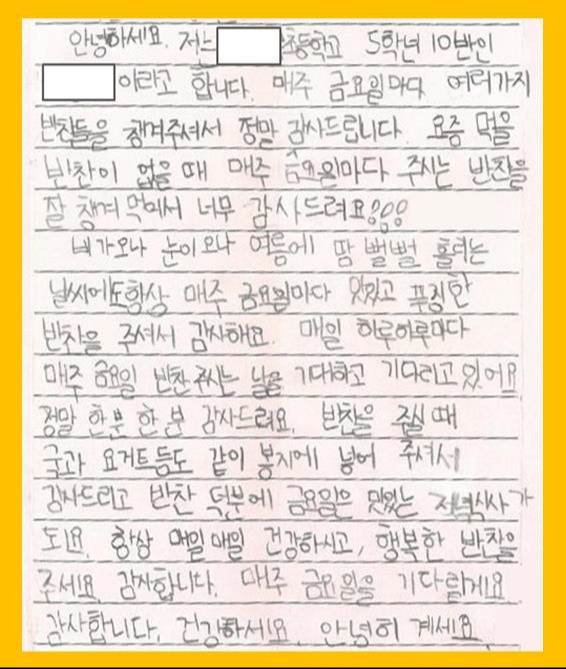 안녕하세요. 저는 초등학교 5학년 10반인
이라고 합니다. 매주 금요일마다 여러가지
반찬들을 챙겨주셔서 정말 감사드립니다. 요즘 먹을
반찬이 없을 때 매주 금요일마다 주시는 반찬을
잘 챙겨 먹어서 너무 감사드려요!!!
비가오나 눈이 오나 여름에 땀 뻘뻘 흘리는
날씨에도 항상 매주 금요일마다 맛있고 푸짐한
반찬을 주셔서 감사해요. 매일 하루하루마다
매주 금요일 반찬 주시는 날을 기대하고 기다리고 있어요
정말 한분 한 분 감사드려요. 반찬을 주실 때
국과 요거트 등도 같이 봉지에 넣어 주셔서
감사드리고 반찬 덕분에 금요일은 맛있는 저녁식사가
되요. 항상 매일 매일 건강하시고, 행복한 반찬을
주세요. 감사합니다. 매주 금요일을 기다릴게요
감사합니다. 건강하세요. 안녕히 계세요.